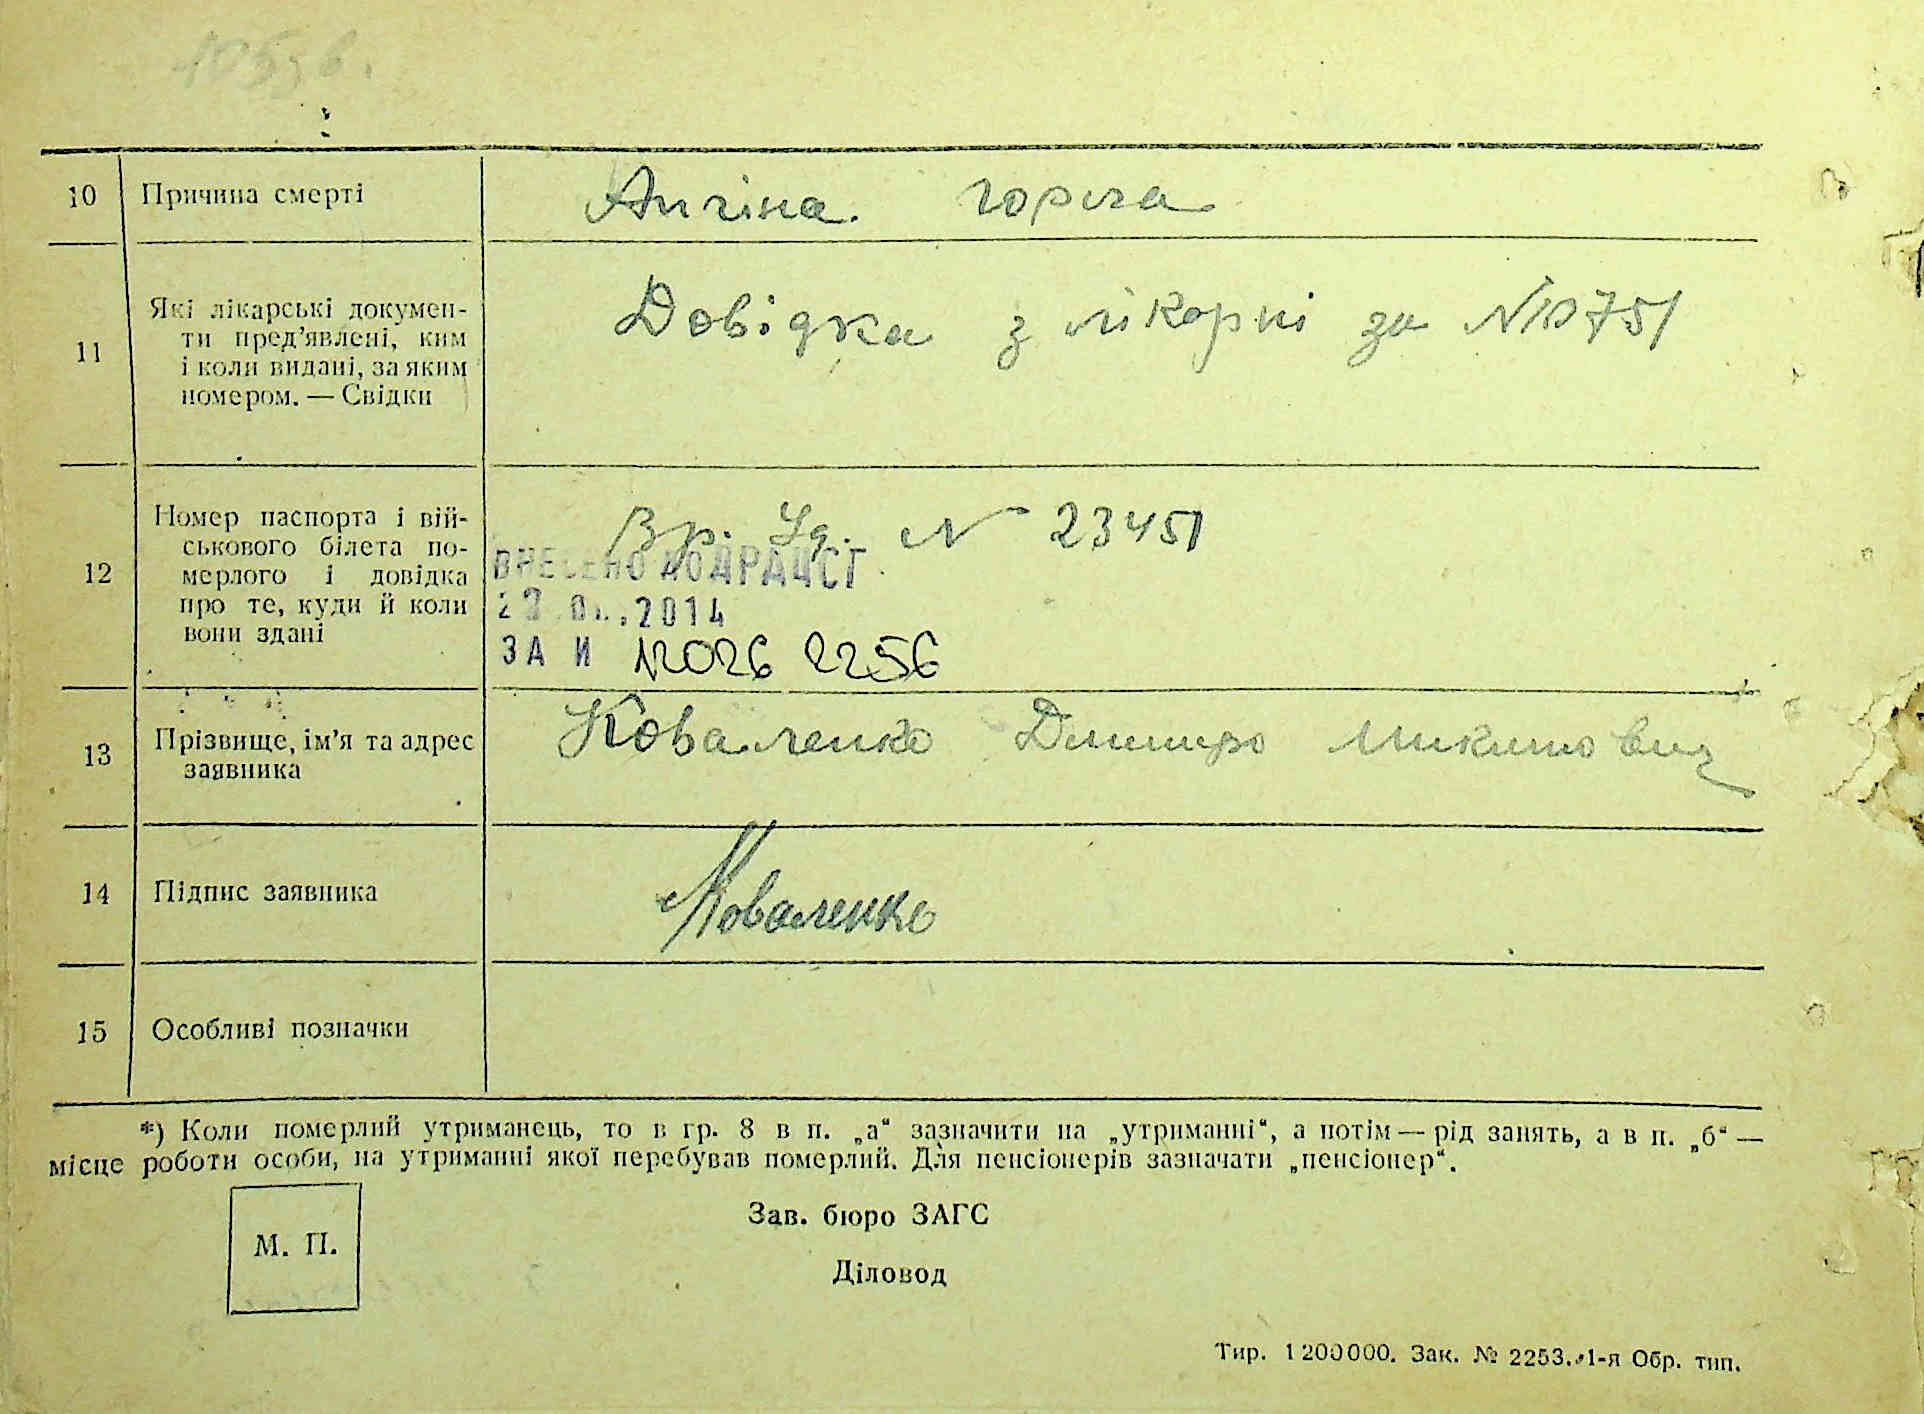 10 Причина смерті Ангіна горла
11 Які лікарські докумен-
ти пред’явлені, ким
і коли видані, за яким
номером. — Свідки
Довідка з лікарні за N10751
12 Номер паспорта і вій-
ськового білета по-
мерлого і довідка
про те, куди й коли
вони здані
Вр. Уд. N 23451
ВНЕСЕНО ДО ДРАЦСГ
.2014
ЗА И 12026 2256
13 Прізвище, ім’я та адрес
заявника
Коваленко Дмитро Микитович
14 Підпис заявника Коваленко
15 Особливі позначки
*) Коли померлий утриманець, то в гр. 8 в п. „а“ зазначити на „утриманні“, а потім — рід занять, а в п. „б“ —
місце роботи особи, на утриманні якої перебував померлий. Для пенсіонерів зазначати „пенсіонер“.
М. П.
Зав. бюро ЗАГС
Діловод
Тир. 1 200 000. Зак. № 2253. 1-я Обр. тип.